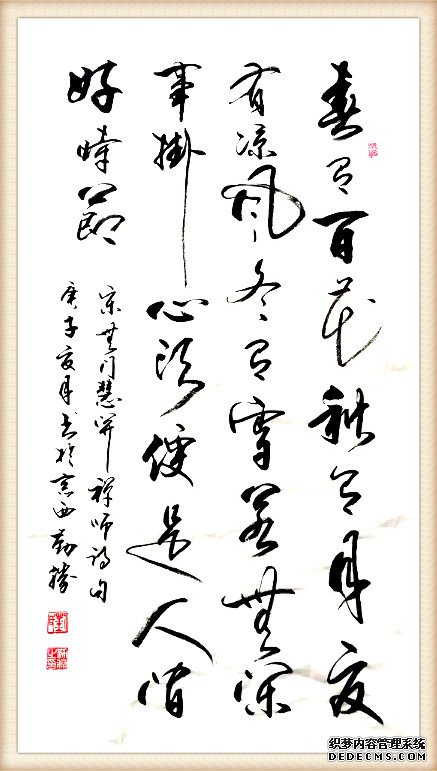 春有百花秋有月夏
有凉风冬有雪若无闲
事掛心头便是人间
好時節
宋无门慧开禅师诗句
庚子夏月书于京西勤胜
织梦内容管理系统
DEDECMS.COM